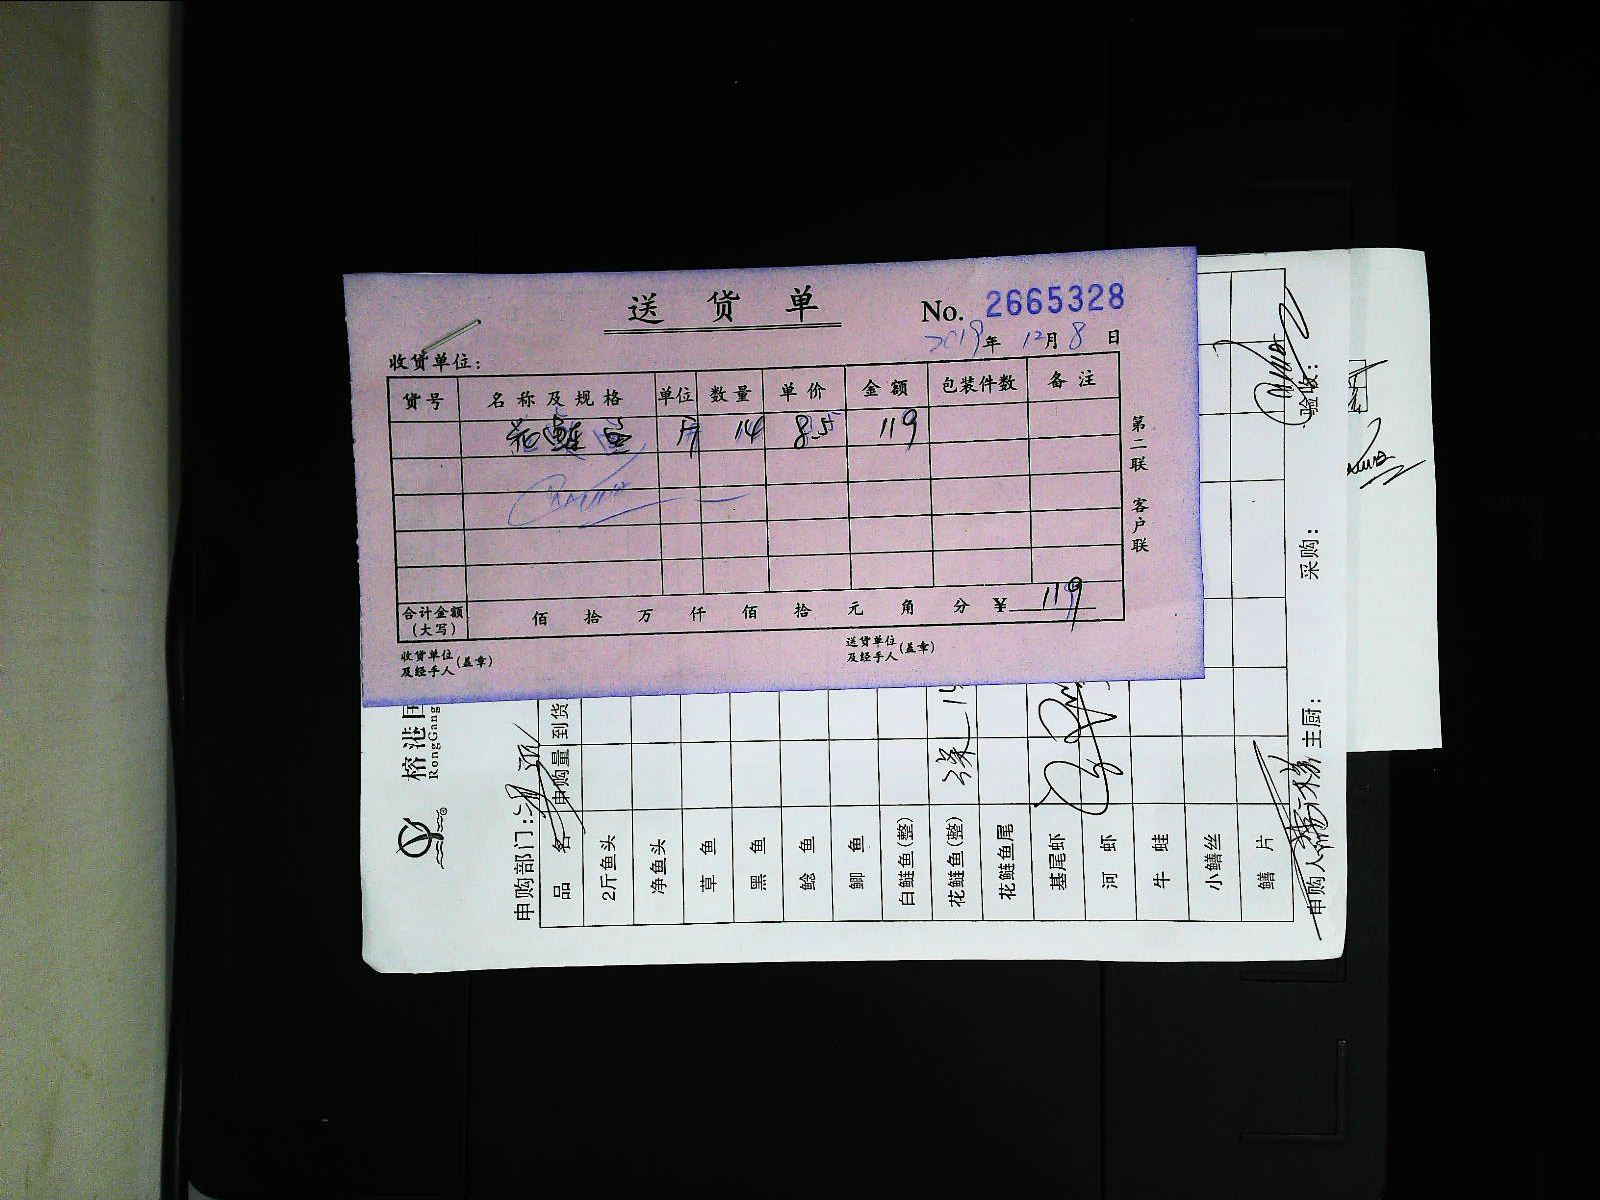 送货单
No. 2665328
2019年 12月 8日
收货单位：
货号 名称及规格 单位 数量 单价 金额 包装件数 备注
花鲢鱼 斤 14 8.5 119
第二联 客户联
合计金额(大写) 佰 拾 万 仟 佰 拾 元 角 分 ¥ 119
收货单位及经手人(盖章) 送货单位及经手人(盖章)
榕港国
RongGang
申购部门：
品名 申购量 到货
2斤鱼头
净鱼头
草鱼
黑鱼
鲶鱼
鲫鱼
白鲢鱼(整)
花鲢鱼(整)
花鲢鱼尾
基尾虾
河虾
牛蛙
小鳝丝
鳝片
申购人 主厨： 采购： 验收：